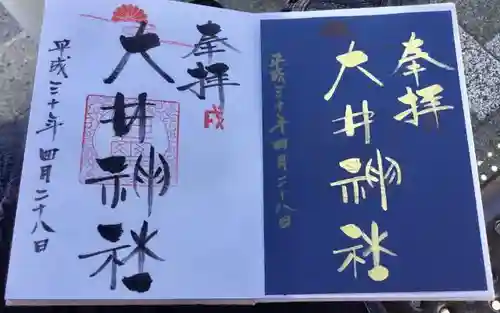 奉拝
戌
大井神社
平成三十年四月二十八日
奉拝
大井神社
平成三十年四月二十八日